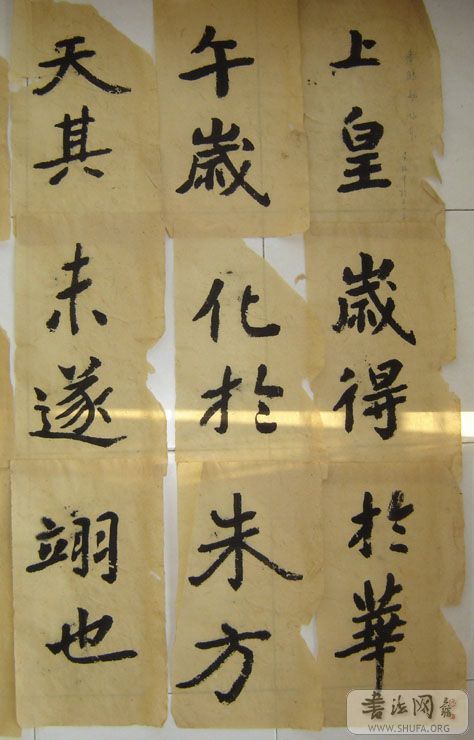 上皇歲得於華
午歲化於朱方
天其未遂翊也
书法网
WWW.SHUFA.ORG